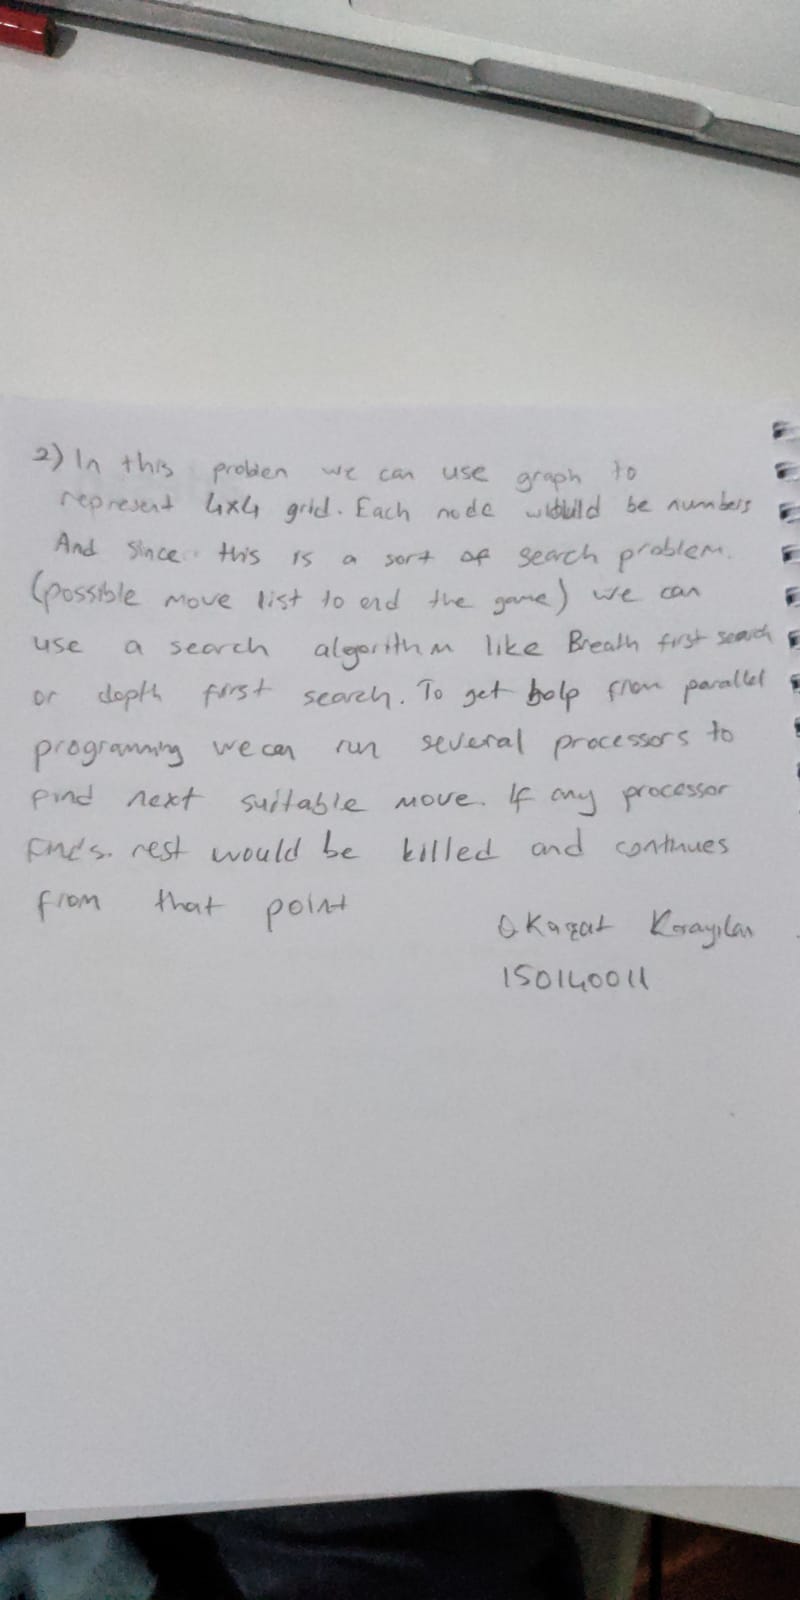 2) In this problen we can use graph to
represent 4x4 grid. Each node would be numbers
And since this is a sort of search problem.
(possible move list to end the game) we can
use a search algorithm like Breath first search
or depth first search. To get help from parallel
programming we can run several processors to
find next suitable move. If any processor
finds. rest would be killed and continues
from that point
150140011